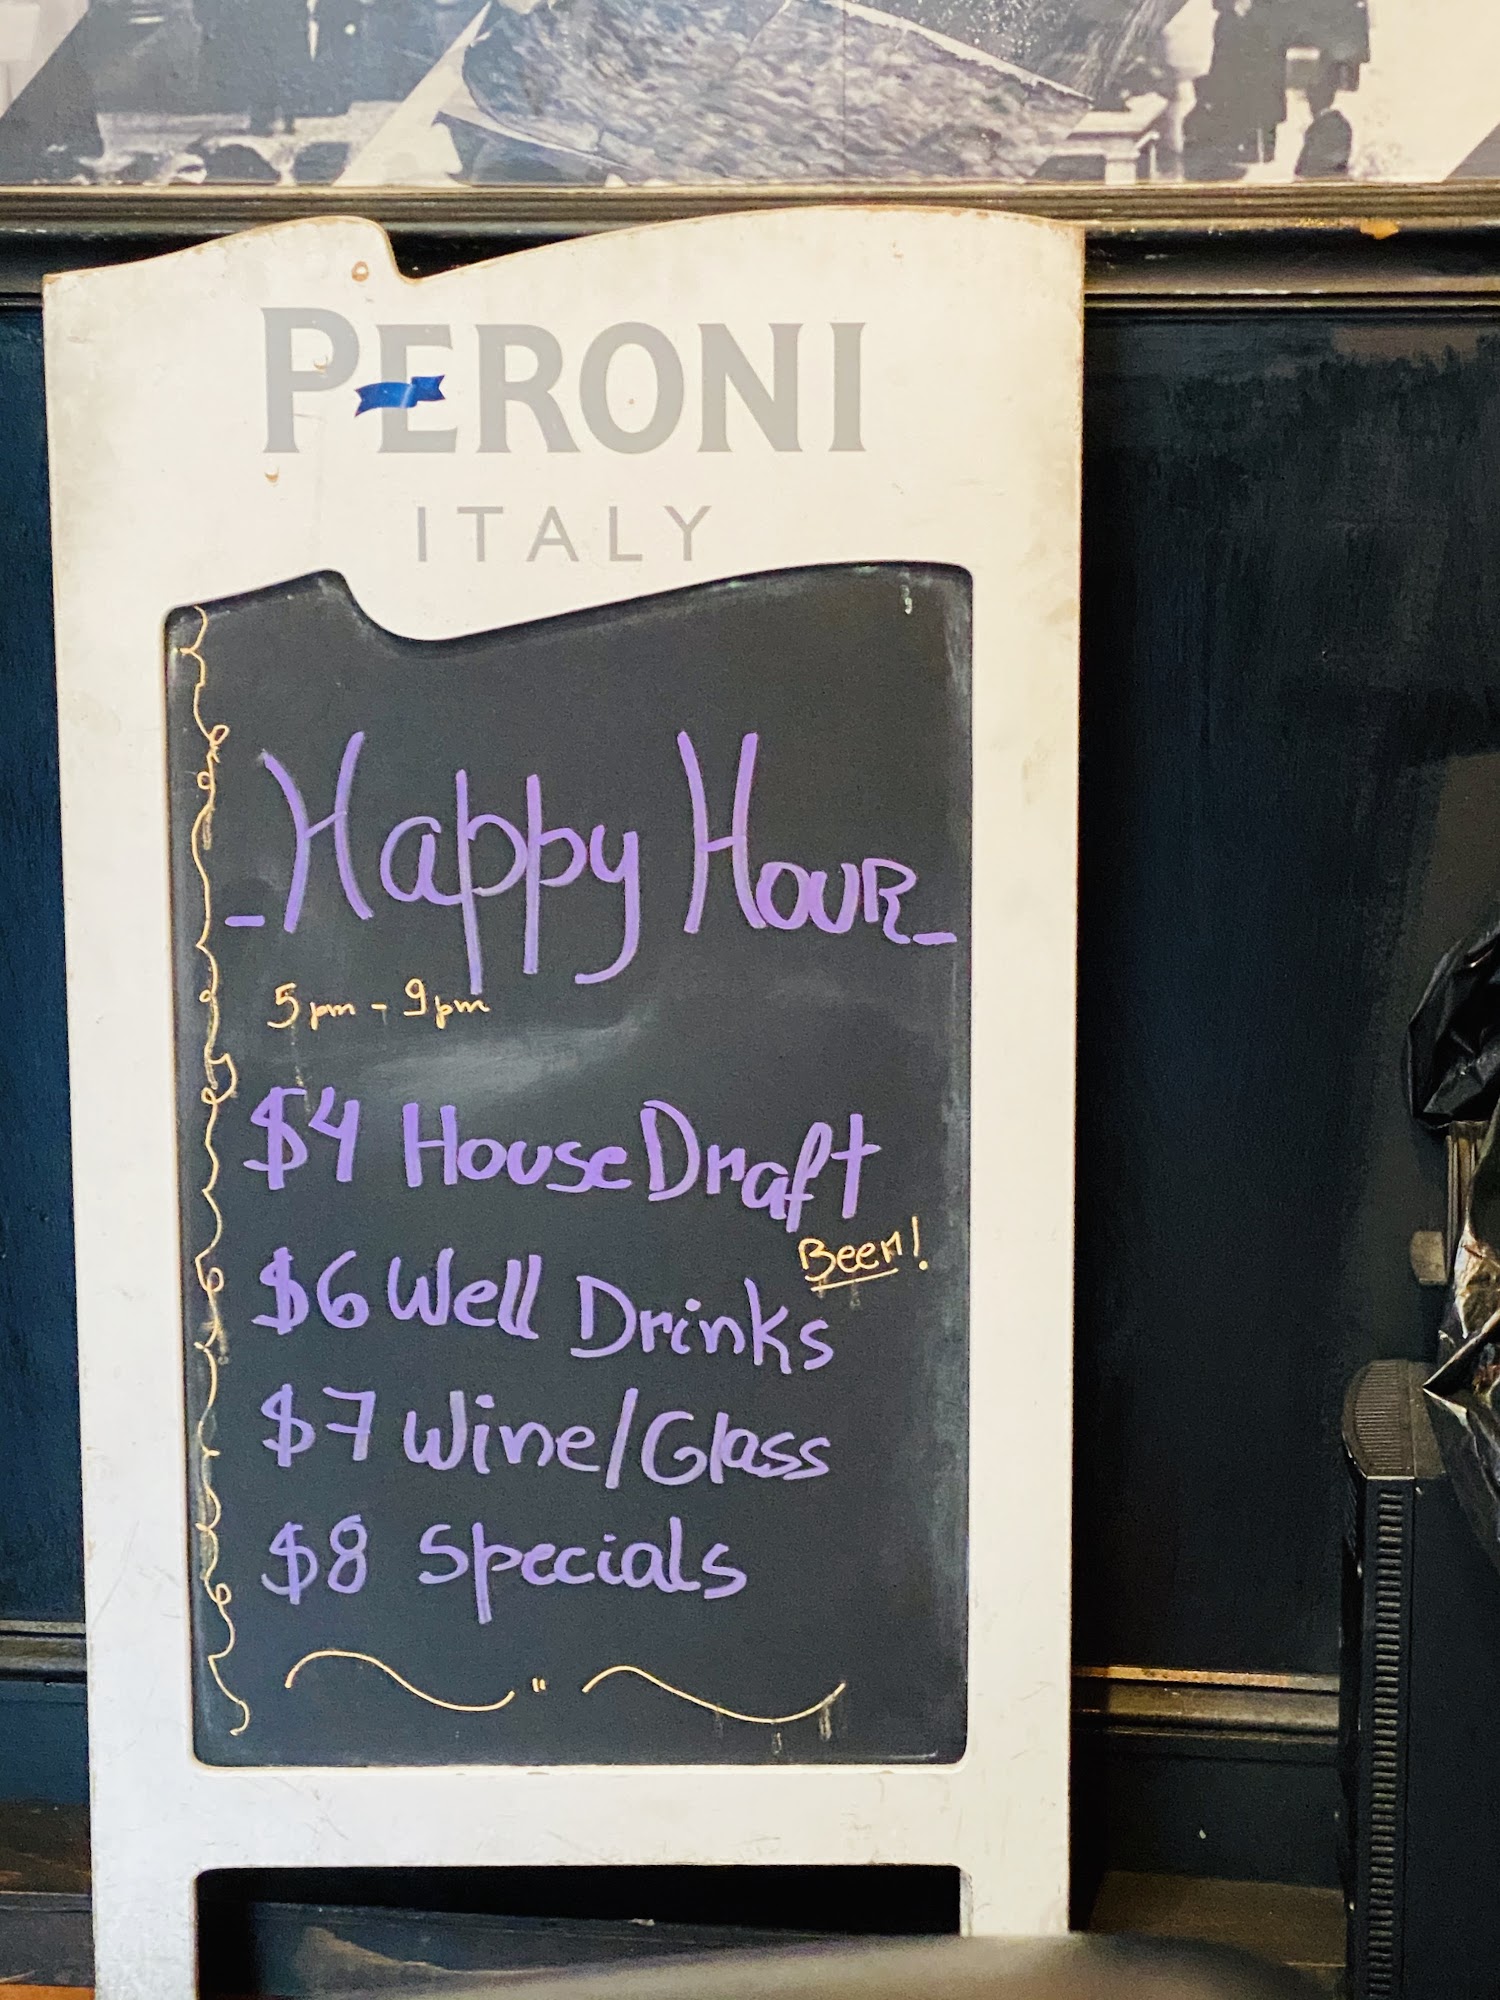 PERONI
ITALY
_Happy Hour_
5pm - 9pm
$4 House Draft
Beer!
$6 Well Drinks
$7 Wine/Glass
$8 Specials